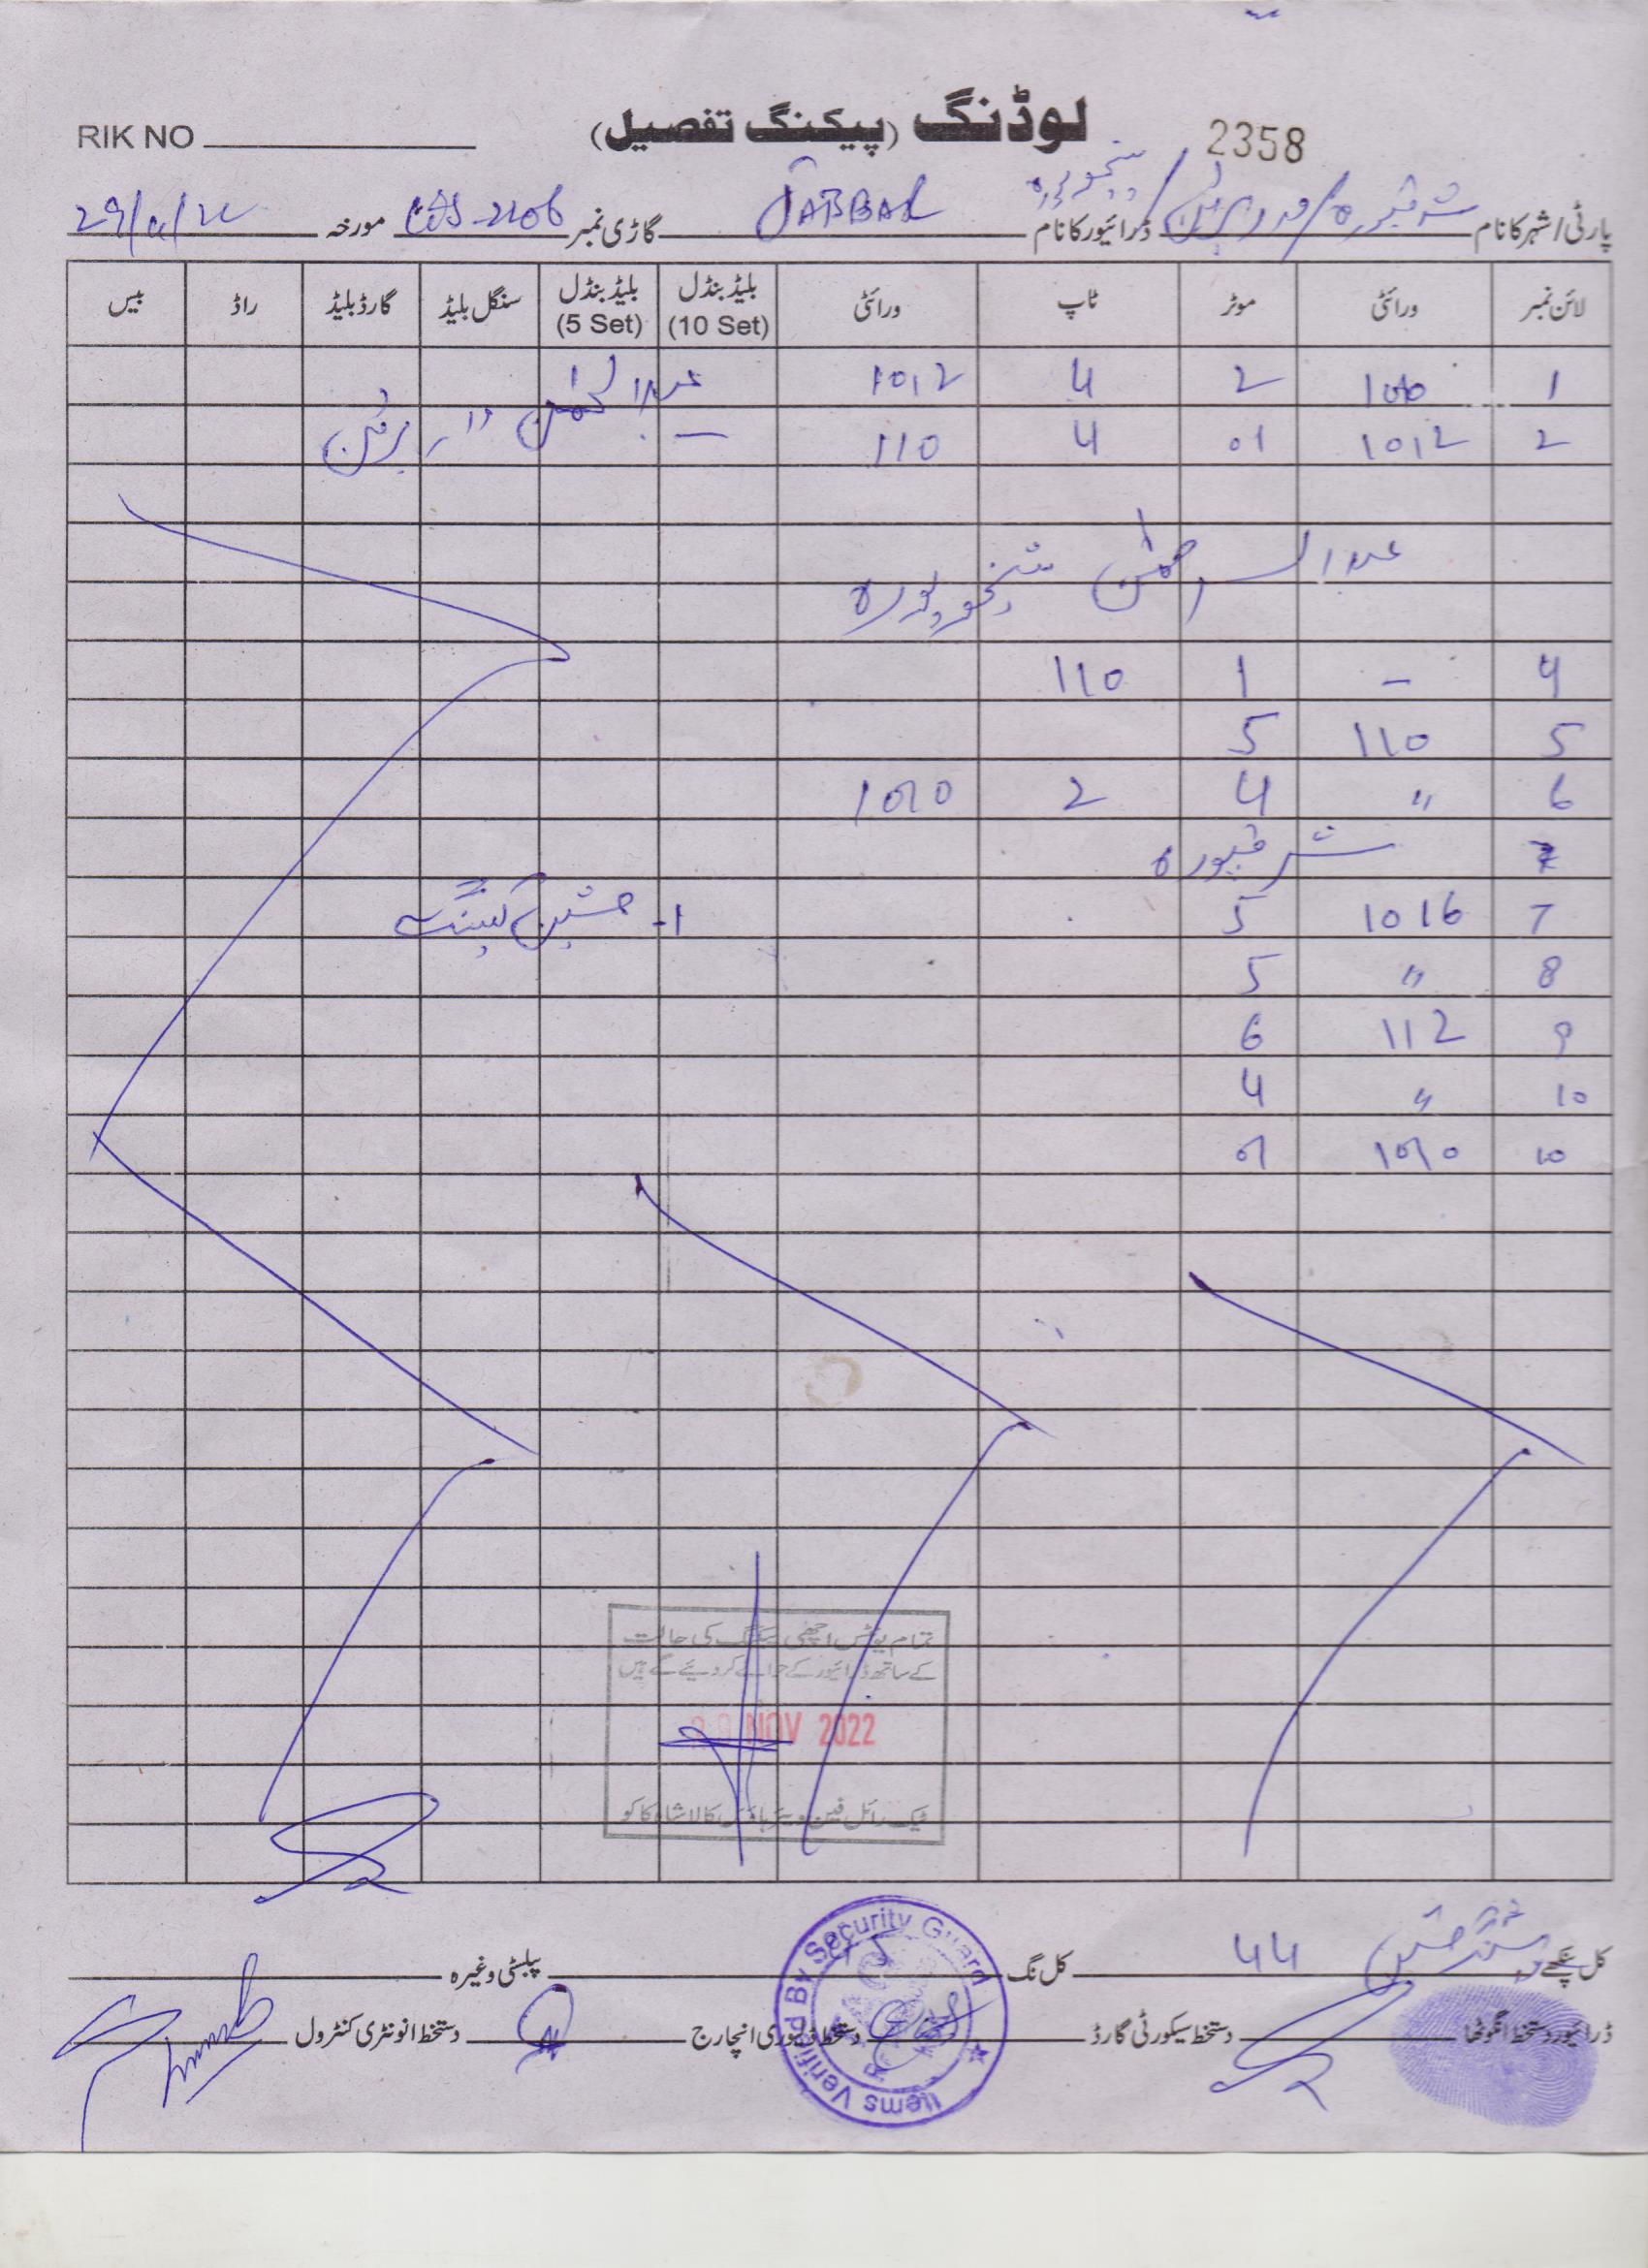 RIK NO
لوڈنگ (پیکنگ تفصیل)
2358
پارٹی/شہر کا نام شرقپورہ
ڈرائیور کا نام JABBAR
گاڑی نمبر 2106
مورخہ 29/11/22
لائن نمبر ورائٹی موٹر ٹاپ ورائٹی بلیڈ بنڈل (10 Set) بلیڈ بنڈل (5 Set) سنگل بلیڈ گارڈ بلیڈ راڈ بیس
1 2 4 1012
2 1012 01 4 110
عبدالرحمٰن شیخوپورہ
4 - 1 110
5 110 5
6 " 4 2 1010
شرقپورہ
7 1016 5 1-
8 " 5
9 112 6
10 " 4
10 1010 01
تمام یونٹس اچھی پیکنگ کی حالت
کے ساتھ ڈرائیور کے حوالے کر دیئے گئے ہیں
29 NOV 2022
ٹیک رائل فین ویئر ہاؤس کالا شاہ کاکو
کل پنکھے 44 کل نگ پبلسٹی وغیرہ
ڈرائیور دستخط انگوٹھا دستخط سیکورٹی گارڈ دستخط ڈلیوری انچارج دستخط انونٹری کنٹرول
Items Verified By Security Guard